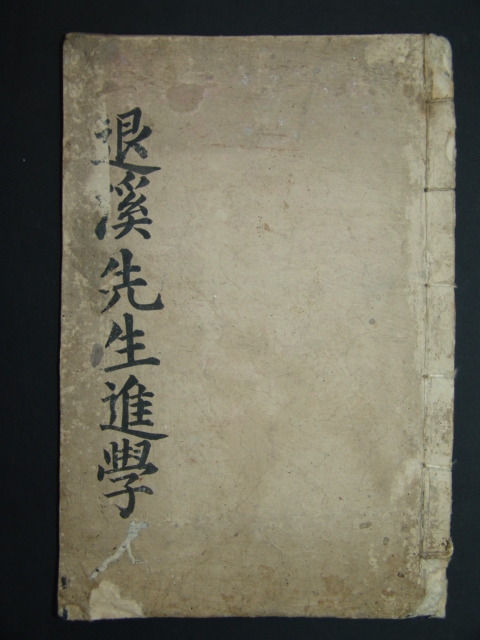 退溪先生進學